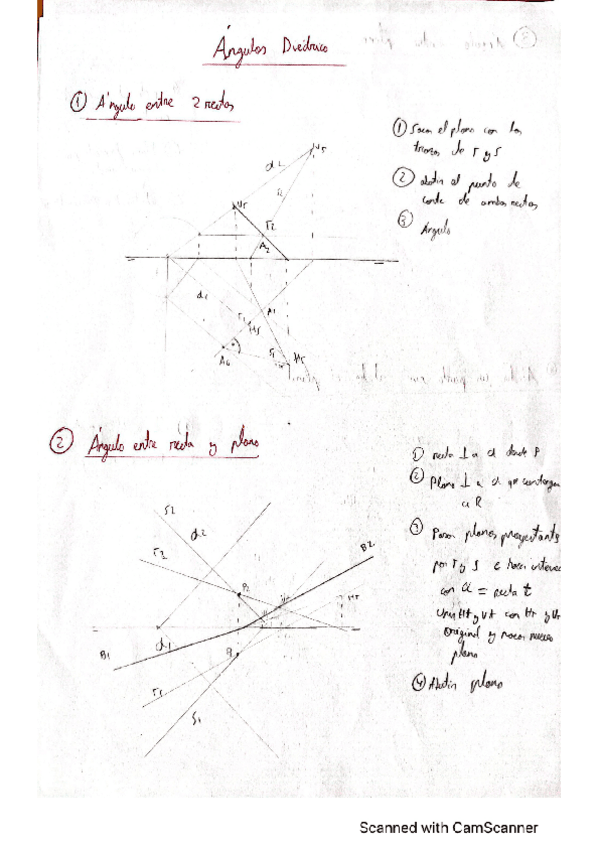 Ángulos Diédrico
① Ángulo entre 2 rectas
① Sacas el plano con las
trazas de r y s
② abatir el punto de
corte de ambas rectas
③ Ángulo
d2
r2
A2
d1
r1
A1
s1
② Ángulo entre recta y plano
① recta ⊥ a α desde P
② Plano ⊥ a α que contenga
a R
③ Pasar planos proyectantes
por r y s
con α = recta t
original y hacer nuevo
plano
④ Abatir plano
s2
d2
r2
B2
P2
B1
d1
P1
r1
s1
Scanned with CamScanner